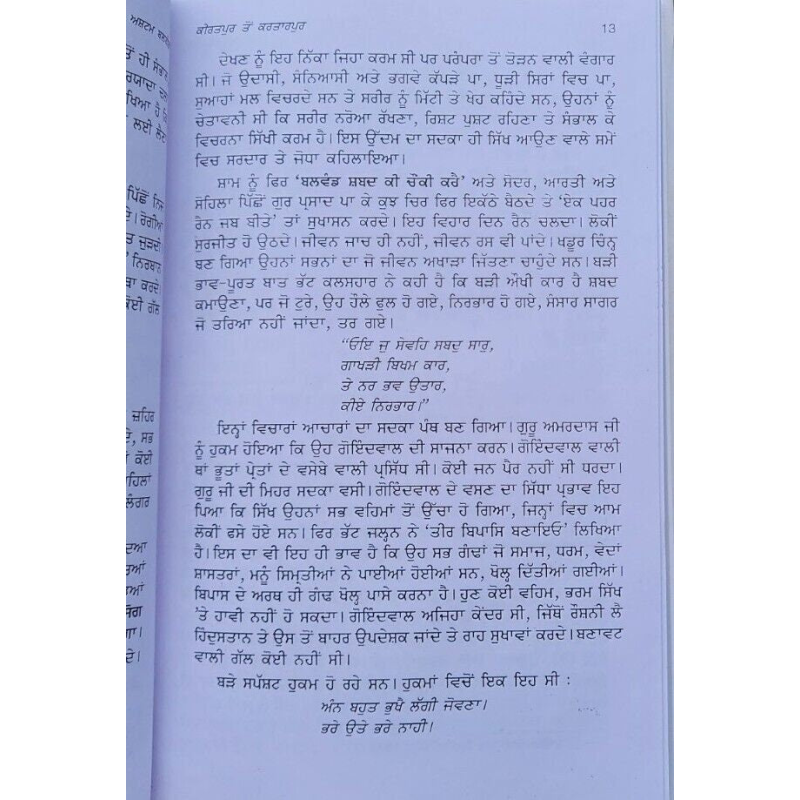 ਕੀਰਤਪੁਰ ਤੋਂ ਕਰਤਾਰਪੁਰ 13
ਦੇਖਣ ਨੂੰ ਇਹ ਨਿੱਕਾ ਜਿਹਾ ਕਰਮ ਸੀ ਪਰ ਪਰੰਪਰਾ ਤੋਂ ਤੋੜਨ ਵਾਲੀ ਵੰਗਾਰ
ਸੀ। ਜੋ ਉਦਾਸੀ, ਸੰਨਿਆਸੀ ਅਤੇ ਭਗਵੇ ਕੱਪੜੇ ਪਾ, ਧੂੜੀ ਸਿਰਾਂ ਵਿਚ ਪਾ,
ਸੁਆਹਾਂ ਮਲ ਵਿਚਰਦੇ ਸਨ ਤੇ ਸਰੀਰ ਨੂੰ ਮਿੱਟੀ ਤੇ ਖੇਹ ਕਹਿੰਦੇ ਸਨ, ਉਹਨਾਂ ਨੂੰ
ਚੇਤਾਵਨੀ ਸੀ ਕਿ ਸਰੀਰ ਨਰੋਆ ਰੱਖਣਾ, ਰਿਸ਼ਟ ਪੁਸ਼ਟ ਰਹਿਣਾ ਤੇ ਸੰਭਾਲ ਕੇ
ਵਿਚਰਨਾ ਸਿੱਖੀ ਕਰਮ ਹੈ। ਇਸ ਉੱਦਮ ਦਾ ਸਦਕਾ ਹੀ ਸਿੱਖ ਆਉਣ ਵਾਲੇ ਸਮੇਂ
ਵਿਚ ਸਰਦਾਰ ਤੇ ਜੋਧਾ ਕਹਿਲਾਇਆ।
ਸ਼ਾਮ ਨੂੰ ਫਿਰ ‘ਬਲਵੰਡ ਸ਼ਬਦ ਕੀ ਚੌਂਕੀ ਕਰੈ’ ਅਤੇ ਸੋਦਰ, ਆਰਤੀ ਅਤੇ
ਸੋਹਿਲਾ ਪਿੱਛੋਂ ਗੁਰ ਪ੍ਰਸਾਦ ਪਾ ਕੇ ਕੁਝ ਚਿਰ ਫਿਰ ਇਕੱਠੇ ਬੈਠਦੇ ਤੇ ‘ਏਕ ਪਹਰ
ਰੈਨ ਜਬ ਬੀਤੇ’ ਤਾਂ ਸੁਖਾਸਨ ਕਰਦੇ। ਇਹ ਵਿਹਾਰ ਦਿਨ ਰੈਨ ਚਲਦਾ। ਲੋਕੀਂ
ਸੁਰਜੀਤ ਹੋ ਉਠਦੇ। ਜੀਵਨ ਜਾਚ ਹੀ ਨਹੀਂ, ਜੀਵਨ ਰਸ ਵੀ ਪਾਂਦੇ। ਖਡੂਰ ਚਿੰਨ੍ਹ
ਬਣ ਗਿਆ ਉਹਨਾਂ ਸਭਨਾਂ ਦਾ ਜੋ ਜੀਵਨ ਅਖਾੜਾ ਜਿੱਤਣਾ ਚਾਹੁੰਦੇ ਸਨ। ਬੜੀ
ਭਾਵ-ਪੂਰਤ ਬਾਤ ਭੱਟ ਕਲਸਹਾਰ ਨੇ ਕਹੀ ਹੈ ਕਿ ਬੜੀ ਔਖੀ ਕਾਰ ਹੈ ਸ਼ਬਦ
ਕਮਾਉਣਾ, ਪਰ ਜੋ ਟੁਰੇ, ਉਹ ਹੌਲੇ ਫੁਲ ਹੋ ਗਏ, ਨਿਰਭਾਰ ਹੋ ਗਏ, ਸੰਸਾਰ ਸਾਗਰ
ਜੋ ਤਰਿਆ ਨਹੀਂ ਜਾਂਦਾ, ਤਰ ਗਏ।
“ਓਇ ਜੁ ਸੇਵਹਿ ਸਬਦੁ ਸਾਰੁ,
ਗਾਖੜੀ ਬਿਖਮ ਕਾਰ,
ਤੇ ਨਰ ਭਵ ਉਤਾਰ,
ਕੀਏ ਨਿਰਭਾਰ।”
ਇਨ੍ਹਾਂ ਵਿਚਾਰਾਂ ਆਚਾਰਾਂ ਦਾ ਸਦਕਾ ਪੰਥ ਬਣ ਗਿਆ। ਗੁਰੂ ਅਮਰਦਾਸ ਜੀ
ਨੂੰ ਹੁਕਮ ਹੋਇਆ ਕਿ ਉਹ ਗੋਇੰਦਵਾਲ ਦੀ ਸਾਜਨਾ ਕਰਨ। ਗੋਇੰਦਵਾਲ ਵਾਲੀ
ਥਾਂ ਭੂਤਾਂ ਪ੍ਰੇਤਾਂ ਦੇ ਵਸੇਬੇ ਵਾਲੀ ਪ੍ਰਸਿੱਧ ਸੀ। ਕੋਈ ਜਨ ਪੈਰ ਨਹੀਂ ਸੀ ਧਰਦਾ।
ਗੁਰੂ ਜੀ ਦੀ ਮਿਹਰ ਸਦਕਾ ਵਸੀ। ਗੋਇੰਦਵਾਲ ਦੇ ਵਸਣ ਦਾ ਸਿੱਧਾ ਪ੍ਰਭਾਵ ਇਹ
ਪਿਆ ਕਿ ਸਿੱਖ ਉਹਨਾਂ ਸਭ ਵਹਿਮਾਂ ਤੋਂ ਉੱਚਾ ਹੋ ਗਿਆ, ਜਿਨ੍ਹਾਂ ਵਿਚ ਆਮ
ਲੋਕੀਂ ਫਸੇ ਹੋਏ ਸਨ। ਫਿਰ ਭੱਟ ਜਲ੍ਹਨ ਨੇ ‘ਤੀਰ ਬਿਪਾਸਿ ਬਣਾਇਓ’ ਲਿਖਿਆ
ਹੈ। ਇਸ ਦਾ ਵੀ ਇਹ ਹੀ ਭਾਵ ਹੈ ਕਿ ਉਹ ਸਭ ਗੰਢਾਂ ਜੋ ਸਮਾਜ, ਧਰਮ, ਵੇਦਾਂ
ਸ਼ਾਸਤਰਾਂ, ਮਨੂੰ ਸਿਮ੍ਰਤੀਆਂ ਨੇ ਪਾਈਆਂ ਹੋਈਆਂ ਸਨ, ਖੋਲ੍ਹ ਦਿੱਤੀਆਂ ਗਈਆਂ।
ਬਿਪਾਸ ਦੇ ਅਰਥ ਹੀ ਗੰਢ ਖੋਲ੍ਹ ਪਾਸੇ ਕਰਨਾ ਹੈ। ਹੁਣ ਕੋਈ ਵਹਿਮ, ਭਰਮ ਸਿੱਖ
’ਤੇ ਹਾਵੀ ਨਹੀਂ ਹੋ ਸਕਦਾ। ਗੋਇੰਦਵਾਲ ਅਜਿਹਾ ਕੇਂਦਰ ਸੀ, ਜਿੱਥੋਂ ਰੌਸ਼ਨੀ ਲੈ
ਹਿੰਦੁਸਤਾਨ ਤੇ ਉਸ ਤੋਂ ਬਾਹਰ ਉਪਦੇਸ਼ਕ ਜਾਂਦੇ ਤੇ ਰਾਹ ਸੁਖਾਵਾਂ ਕਰਦੇ। ਬਣਾਵਟ
ਵਾਲੀ ਗੱਲ ਕੋਈ ਨਹੀਂ ਸੀ।
ਬੜੇ ਸਪੱਸ਼ਟ ਹੁਕਮ ਹੋ ਰਹੇ ਸਨ। ਹੁਕਮਾਂ ਵਿਚੋਂ ਇਕ ਇਹ ਸੀ :
ਅੰਨ ਬਹੁਤ ਭੁਖੈ ਲੱਗੀ ਜੇਵਣਾ।
ਭਰੇ ਉਤੇ ਭਰੇ ਨਾਹੀ।